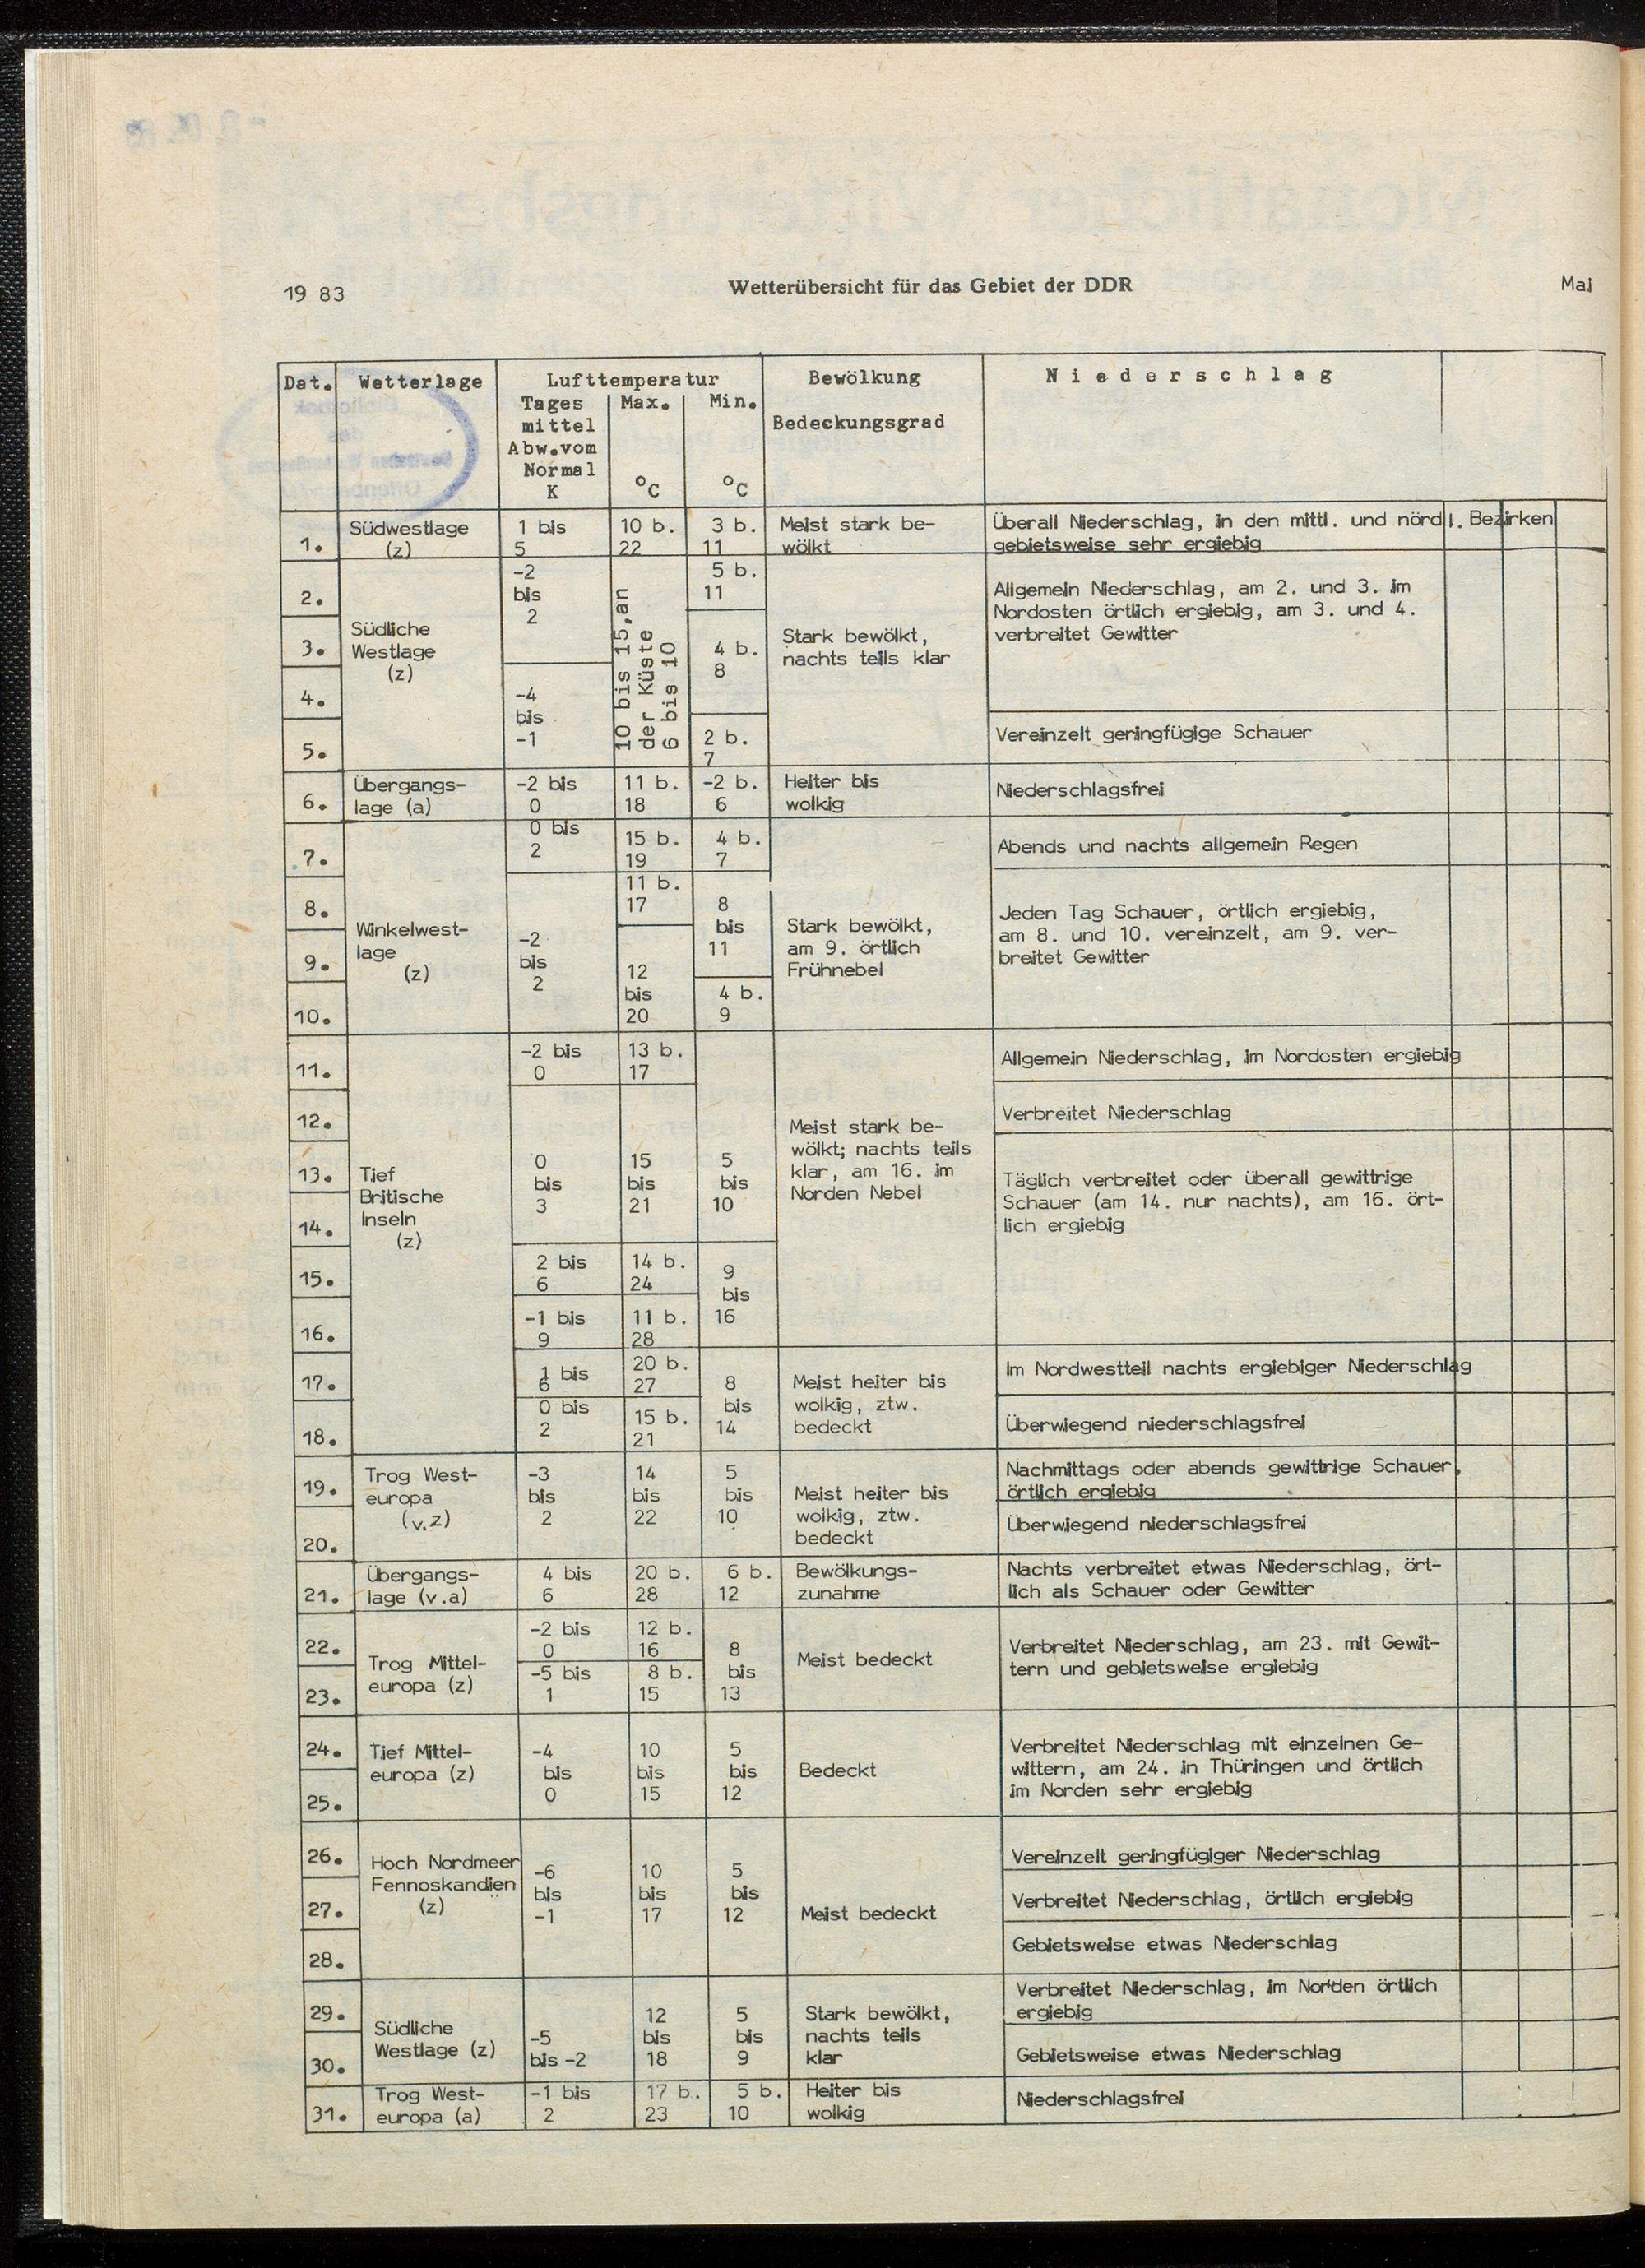 19 83
Wetterübersicht für das Gebiet der DDR
Mai
Dat.
Wetterlage
Lufttemperatur
Tages
mittel
Abw.vom
Normal
K
Max.
°C
Min.
°C
Bewölkung
Bedeckungsgrad
Niederschlag
1.
Südwestlage
(z)
1 bis
5
10 b.
22
3 b.
11
Meist stark be-
wölkt
Überall Niederschlag, in den mittl. und nördl. Bezirken
gebietsweise sehr ergiebig
2.
3.
4.
5.
Südliche
Westlage
(z)
-2
bis
2
-4
bis
-1
10 bis 15, an
der Küste
6 bis 10
5 b.
11
4 b.
8
2 b.
7
Stark bewölkt,
nachts teils klar
Allgemein Niederschlag, am 2. und 3. im
Nordosten örtlich ergiebig, am 3. und 4.
verbreitet Gewitter
Vereinzelt geringfügige Schauer
6.
Übergangs-
lage (a)
-2 bis
0
11 b.
18
-2 b.
6
Heiter bis
wolkig
Niederschlagsfrei
7.
8.
9.
10.
Winkelwest-
lage
(z)
0 bis
2
-2
bis
2
15 b.
19
11 b.
17
12
bis
20
4 b.
7
8
bis
11
4 b.
9
Stark bewölkt,
am 9. örtlich
Frühnebel
Abends und nachts allgemein Regen
Jeden Tag Schauer, örtlich ergiebig,
am 8. und 10. vereinzelt, am 9. ver-
breitet Gewitter
11.
12.
13.
14.
15.
16.
17.
18.
Tief
Britische
Inseln
(z)
-2 bis
0
0
bis
3
2 bis
6
-1 bis
9
1 bis
6
0 bis
2
13 b.
17
15
bis
21
14 b.
24
11 b.
28
20 b.
27
15 b.
21
5
bis
10
9
bis
16
8
bis
14
Meist stark be-
wölkt; nachts teils
klar, am 16. im
Norden Nebel
Meist heiter bis
wolkig, ztw.
bedeckt
Allgemein Niederschlag, im Nordosten ergiebig
Verbreitet Niederschlag
Täglich verbreitet oder überall gewittrige
Schauer (am 14. nur nachts), am 16. ört-
lich ergiebig
Im Nordwestteil nachts ergiebiger Niederschlag
Überwiegend niederschlagsfrei
19.
20.
Trog West-
europa
(v.z)
-3
bis
2
14
bis
22
5
bis
10
Meist heiter bis
wolkig, ztw.
bedeckt
Nachmittags oder abends gewittrige Schauer,
örtlich ergiebig
Überwiegend niederschlagsfrei
21.
Übergangs-
lage (v.a)
4 bis
6
20 b.
28
6 b.
12
Bewölkungs-
zunahme
Nachts verbreitet etwas Niederschlag, ört-
lich als Schauer oder Gewitter
22.
23.
Trog Mittel-
europa (z)
-2 bis
0
-5 bis
1
12 b.
16
8 b.
15
8
bis
13
Meist bedeckt
Verbreitet Niederschlag, am 23. mit Gewit-
tern und gebietsweise ergiebig
24.
25.
Tief Mittel-
europa (z)
-4
bis
0
10
bis
15
5
bis
12
Bedeckt
Verbreitet Niederschlag mit einzelnen Ge-
wittern, am 24. in Thüringen und örtlich
im Norden sehr ergiebig
26.
27.
28.
Hoch Nordmeer
Fennoskandien
(z)
-6
bis
-1
10
bis
17
5
bis
12
Meist bedeckt
Vereinzelt geringfügiger Niederschlag
Verbreitet Niederschlag, örtlich ergiebig
Gebietsweise etwas Niederschlag
29.
30.
Südliche
Westlage (z)
-5
bis -2
12
bis
18
5
bis
9
Stark bewölkt,
nachts teils
klar
Verbreitet Niederschlag, im Norden örtlich
ergiebig
Gebietsweise etwas Niederschlag
31.
Trog West-
europa (a)
-1 bis
2
17 b.
23
5 b.
10
Heiter bis
wolkig
Niederschlagsfrei